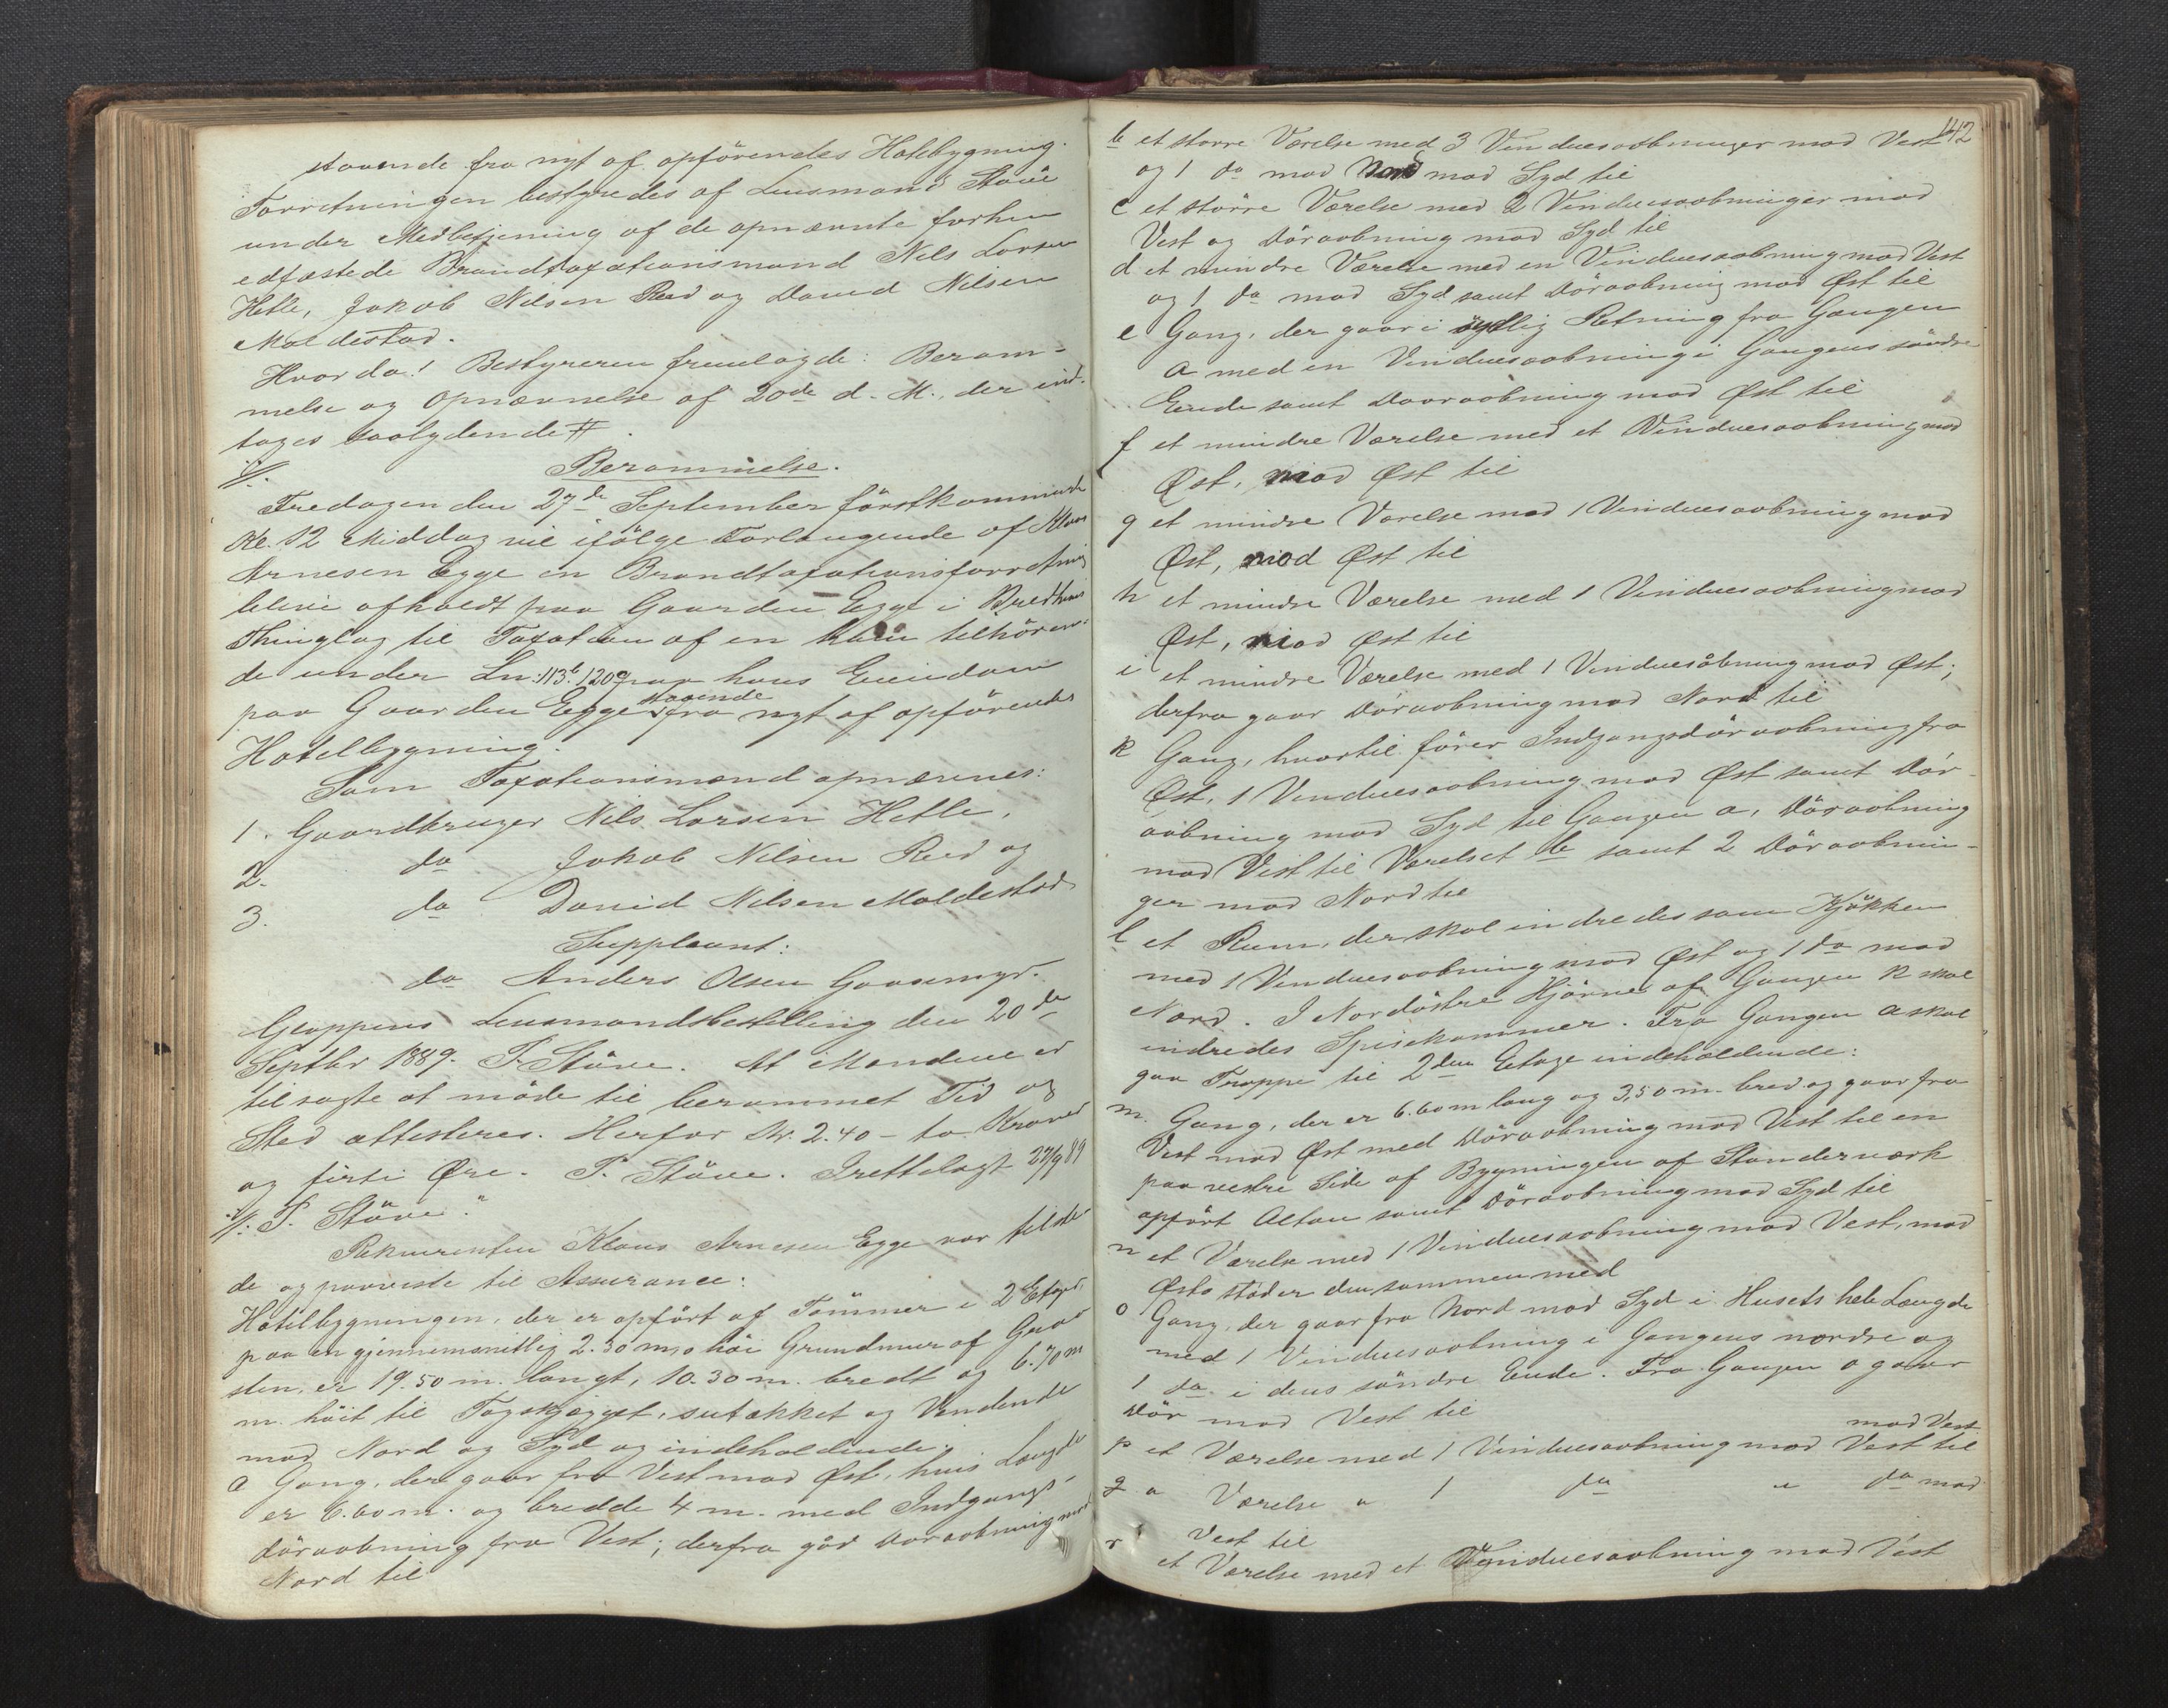 staaende fra nyt af opförendes Hotelbygning.
Forretningen bestyredes af Lensmand Stöve
under Medbetjening af de opnævnte forhen
edfæstede Brandtaxationsmænd Nils Larsen
Hetle, Jakob Nilsen Reed og David Nilsen
Moldestad.
Hvorda! Bestyreren fremlagde: Beram-
melse og Opnævnelse af 20de d. M., der ind-
tages saalydende #.
//. Berammelse.
Fredagen den 27de September förstkommende
Kl. 12 Middag vil ifölge Forlangende af Klaus
Arnesen Egge en Brandtaxationsforretning
blive afholdt paa Gaarden Egge i Bredheim
Thinglag til Taxation af en ham tilhören-
de under Ln: 113b. 120a paa hans Eiendom
paa Gaarden Egge staaende fra nyt af opförendes
Hotelbygning.
Som Taxationsmænd opnævnes:
1. Gaardbruger Nils Larsen Hetle,
2. do Jakob Nilsen Reed og
3. do David Nilsen Moldestad
Suppleant:
do Anders Olsen Gaasemyr.
Gloppens Lensmandsbestilling den 20de
Septbr 1889. P. Stöve. At Mændene er
tilsagte at möde til berammet Tid og
Sted attesteres. Herfor Kr. 2.40 - to Kroner
og firti Øre. P. Stöve. Irettelagt 27/9 89
//. P. Stöve."
Rekvirenten Klaus Arnesen Egge var tilste-
de og paaviste til Assurance:
Hotelbygningen, der er opfört af Tömmer i 2 Etager,
paa en gjennemsnitlig 2.30 m. höi Grundmur af Graa-
sten, er 19.50 m. langt, 10.30 m. bredt og 6.70 m
m. höit til Tagskjægget, utækket og Vendende
mod Nord og Syd og indeholdende:
a Gang, der gaar fra Vest mod Øst, hvis Længde
er 6.60 m. og bredde 4 m. med Indgangs-
döraabning fra Vest; derfra går Döraabning mod
Nord til
142
b et större Værelse med 3 Vinduesaabninger mod Vest
og 1 do mod Nord mod Syd til
c et större Værelse med 2 Vinduesaabninger mod
Vest og Döraabning mod Syd til
d et mindre Værelse med en Vinduesaabning mod Vest
og 1 do mod Syd samt Döraabning mod Øst til
e Gang, der gaar i sydlig Retning fra Gangen
a med en Vinduesaabning i Gangens söndre
Ende samt Döraabning mod Øst til
f et mindre Værelse med et Vinduesaabning mod
Øst, mod Øst til
g et mindre Værelse med 1 Vinduesaabning mod
Øst, mod Øst til
h et mindre Værelse med 1 Vinduesaabning mod
Øst, mod Øst til
i et mindre Værelse med 1 Vinduesåbning mod Øst;
derfra gaar Döraabning mod Nord til
k Gang, hvortil förer Indgangsdöraabning fra
Øst, 1 Vinduesaabning mod Øst samt Dör-
aabning mod Syd til Gangen a, Döraabning
mod Vest til Værelset b samt 2 Döraabnin-
ger mod Nord til
l et Rum, der skal indredes som Kjökken
med 1 Vinduesaabning mod Øst og 1 do mod
Nord. I Nordöstre Hjörne af Gangen k skal
indredes Spisekammer. Fra Gangen a skal
gaa Trappe til 2den Etage indeholdende:
m. Gang, der er 6.60 m lang og 3.50 m. bred og gaar fra
Vest mod Øst med Döraabning mod Vest til en
paa vestre Side af Bygningen af Standerværk
opfört Altan samt Döraabning mod Syd til
n et Værelse med 1 Vinduesaabning mod Vest, mod
Østo stöder den sammen med
o Gang, der gaar fra Nord mod Syd i Husets hele Længde
med 1 Vinduesaabning i Gangens nordre og
1 do i dens söndre Ende. Fra Gangen o gaar
Dör mod Vest til
p et Værelse med 1 Vinduesaabning mod Vest til mod Vest
q " Værelse " 1 do " do mod
Vest til
r et Værelse med et Vinduesaabning mod Vest